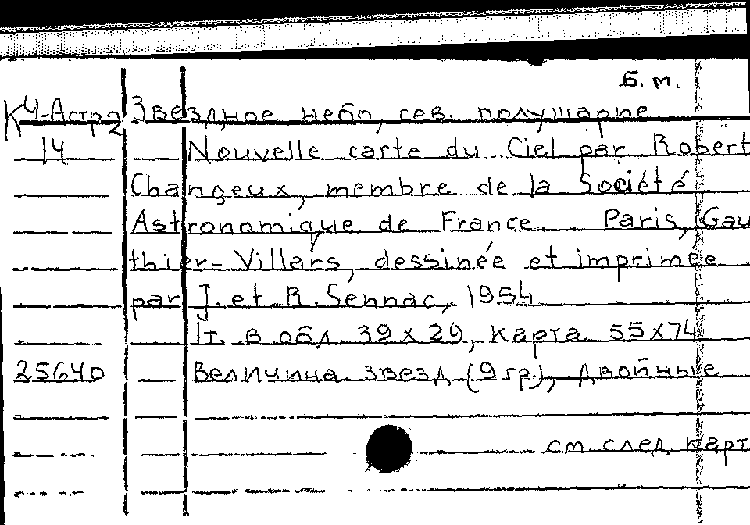 Б. м.
К4-Астр2 Звездное небо, сев. полушарие
14 Nouvelle carte du Ciel par Robert
Changeux, membre de la Société
Astronomique de France. Paris, Gau
thier-Villars, dessinée et imprimée
par J. et R. Sennac, 1954
1т. в обл. 39 x 29, карта 55x74
25640 Величина звезд (9 гр), двойные
см. след. карт